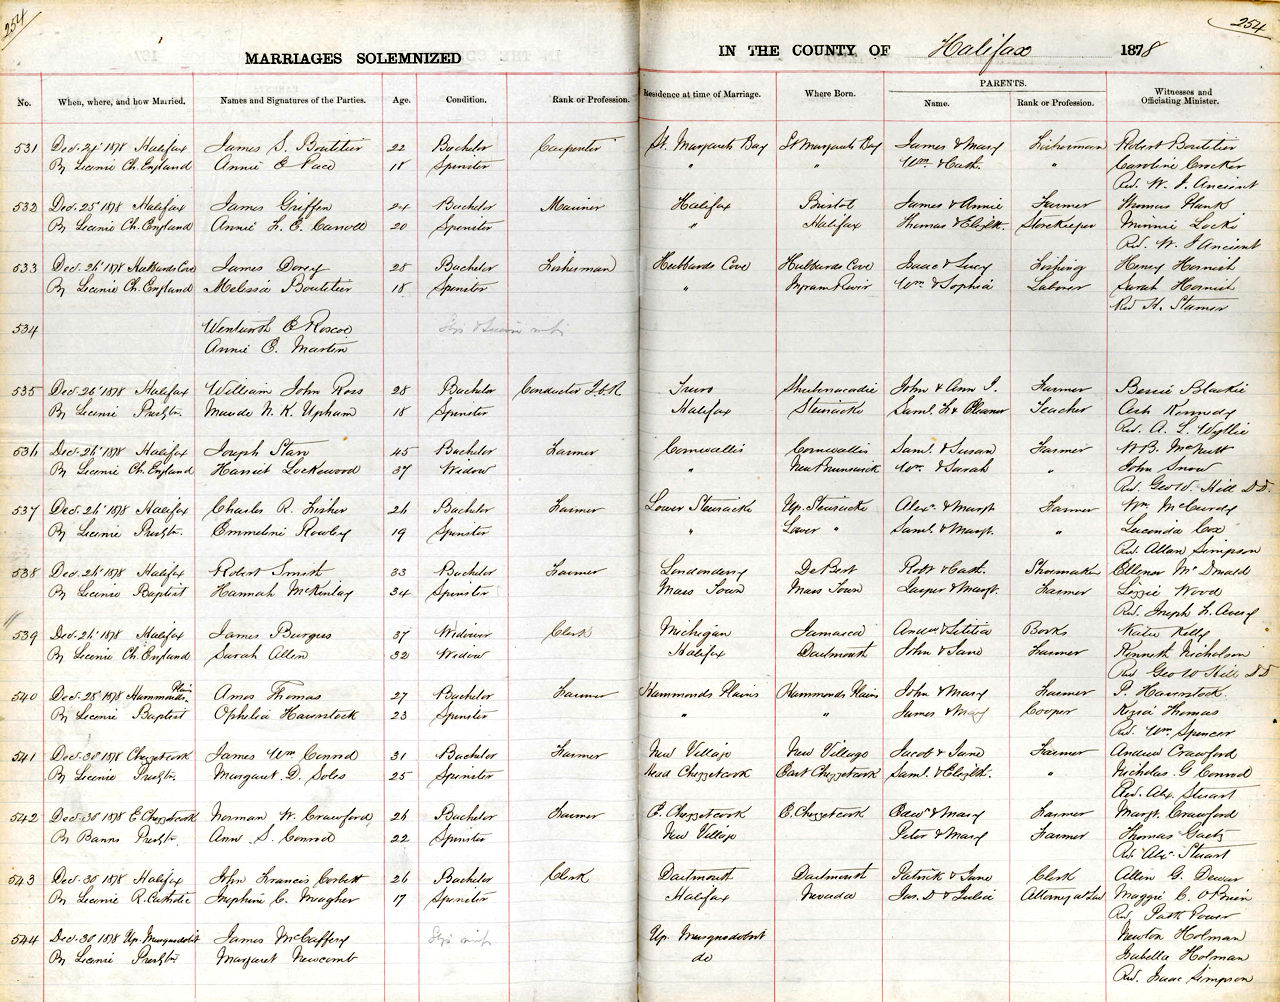 254
254
MARRIAGES SOLEMNIZED IN THE COUNTY OF Halifax 1878
PARENTS.
No. When, where, and how Married. Names and Signatures of the Parties. Age. Condition. Rank or Profession. Residence at time of Marriage. Where Born. Name. Rank or Profession. Witnesses and Officiating Minister.
531 Dec. 24' 1878 Halifax James S. Boutilier 22 Bachelor Carpenter St. Margarets Bay St Margarets Bay James & Mary Fisherman Robert Boutilier
By Licence Ch. England Annie E Pace 18 Spinster " " Wm & Cath. " Caroline Crocker
Rev. W. J. Ancient
532 Dec. 25' 1878 Halifax James Griffen 24 Bachelor Mariner Halifax Bristol James & Annie Farmer Thomas Hank
By Licence Ch. England Annie L. E. Carroll 20 Spinster " Halifax Thomas & Elizth. Storekeeper Minnie Locke
Rev. W. J Ancient
533 Dec. 26' 1878 Hubbards Cove James Dorey 28 Bachelor Fisherman Hubbards Cove Hubbards Cove Isaac & Lucy Fishing Henry Hornish
By Licence Ch. England Melissia Boutilier 18 Spinster " Ingram River Wm & Sophia Laborer Sarah Hornish
Rev H. Stamer
534 Wentworth E Roscoe
Annie E. Martin
535 Dec. 26' 1878 Halifax William John Ross 28 Bachelor Conductor I.C.R Truro Shubenacadie John & Ann I. Farmer Bessie Blackie
By Licence Presbtn. Maude N. K. Upham 18 Spinster Halifax Stewiacke Saml. F & Eleanor Teacher Kennedy
Rev. A. L. Wyllie
536 Dec. 26' 1878 Halifax Joseph Starr 45 Bachelor Farmer Cornwallis Cornwallis Saml. & Susan Farmer W B. McNutt
By Licence Ch. England Harriet Lockwood 37 Widow " New Brunswick Wm. & Sarah " John Snow
Rev. Geo W. Hill D.D.
537 Dec. 26' 1878 Halifax Charles R. Fisher 26 Bachelor Farmer Lower Stewiacke Up. Stewiacke Alexr. & Margt Farmer Wm. McCurdy
By Licence Presbtn. Emmeline Rowley 19 Spinster " Lower " Saml. & Margt. " Lucinda Cox
Rev. Allan Simpson
538 Dec. 26' 1878 Halifax Robert Smith 33 Bachelor Farmer Londonderry De Bert Robt & Cath. Shoemaker Ellenor McDonald
By Licence Baptist Hannah McKinlay 34 Spinster Mass Town Mass Town Jasper & Margt. Farmer Lizzie Wood
Rev. Joseph F. Avery
539 Dec. 26' 1878 Halifax James Burgus 37 Widower Clerk Michigan Jamaica Andw & Letitia Books Katie Kelly
By Licence Ch. England Sarah Allen 32 Widow Halifax Dartmouth John & Jane Farmer Kenneth Nicholson
Rev Geo W Hill D D
540 Dec. 28' 1878 Hammonds Plains Amos Thomas 27 Bachelor Farmer Hammonds Plains Hammonds Plains John & Mary Farmer P. Haverstock
By Licence Baptist Ophelia Haverstock 23 Spinster " " James & Mary Cooper Kezia Thomas
Rev. Wm. Spencer
541 Dec. 30 1878 Chezzetcook James Wm Conrod 31 Bachelor Farmer New Village New Village Jacob & Jane Farmer Andrew Crawford
By Licence Presbtn. Margaret D. Soles 25 Spinster Head Chezzetcook East Chezzetcook Saml. & Elizth. " Nicholas G Conrod
Rev. Alx. Stuart
542 Dec. 30 1878 E. Chezzetcook Norman W. Crawford 26 Bachelor Farmer E. Chezzetcook E. Chezzetcook Edwd & Mary Farmer Margt. Crawford
By Banns Presbtn. Ann S. Conrod 22 Spinster New Village Peter & Mary Farmer Thomas Gaetz
Rev. Alx. Stuart
543 Dec. 30 1878 Halifax John Francis Corbett 26 Bachelor Clerk Dartmouth Dartmouth Patrick & Jane Clerk Allen G. Dewar
By Licence R. Catholic Josephine C. Meagher 17 Spinster Halifax Nevada Jas. D & Julia Attorney at Law Maggie C. O'Brien
Rev. Patk Power
544 Dec. 30 1878 Up. Musquodobit James McCaffery Up. Musquodobit Newton Holman
By Licence Presbtn Margaret Newcomb do Isabella Holman
Rev. Isaac Simpson